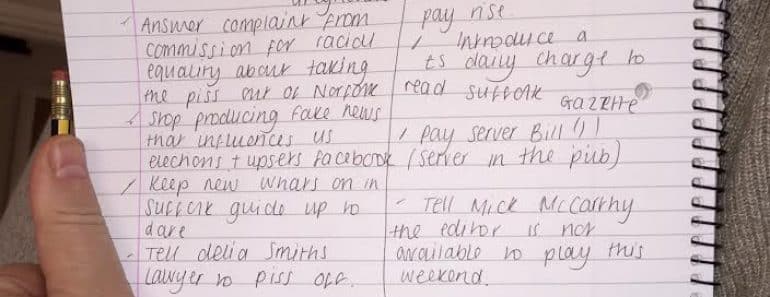 / Answer complaint from
commission for racial
equality about taking
the piss out of Norfolk
/ Stop producing fake news
that influences US
elections + upsets facebook
/ Keep new whats on in
Suffolk guide up to
date
- Tell delia Smiths
Lawyer to piss off.
pay rise
/ Introduce a
£5 daily charge to
read Suffolk
Gazette
/ pay server Bill !!!
(server in the pub)
- Tell Mick McCarthy
the editor is not
available to play this
weekend.